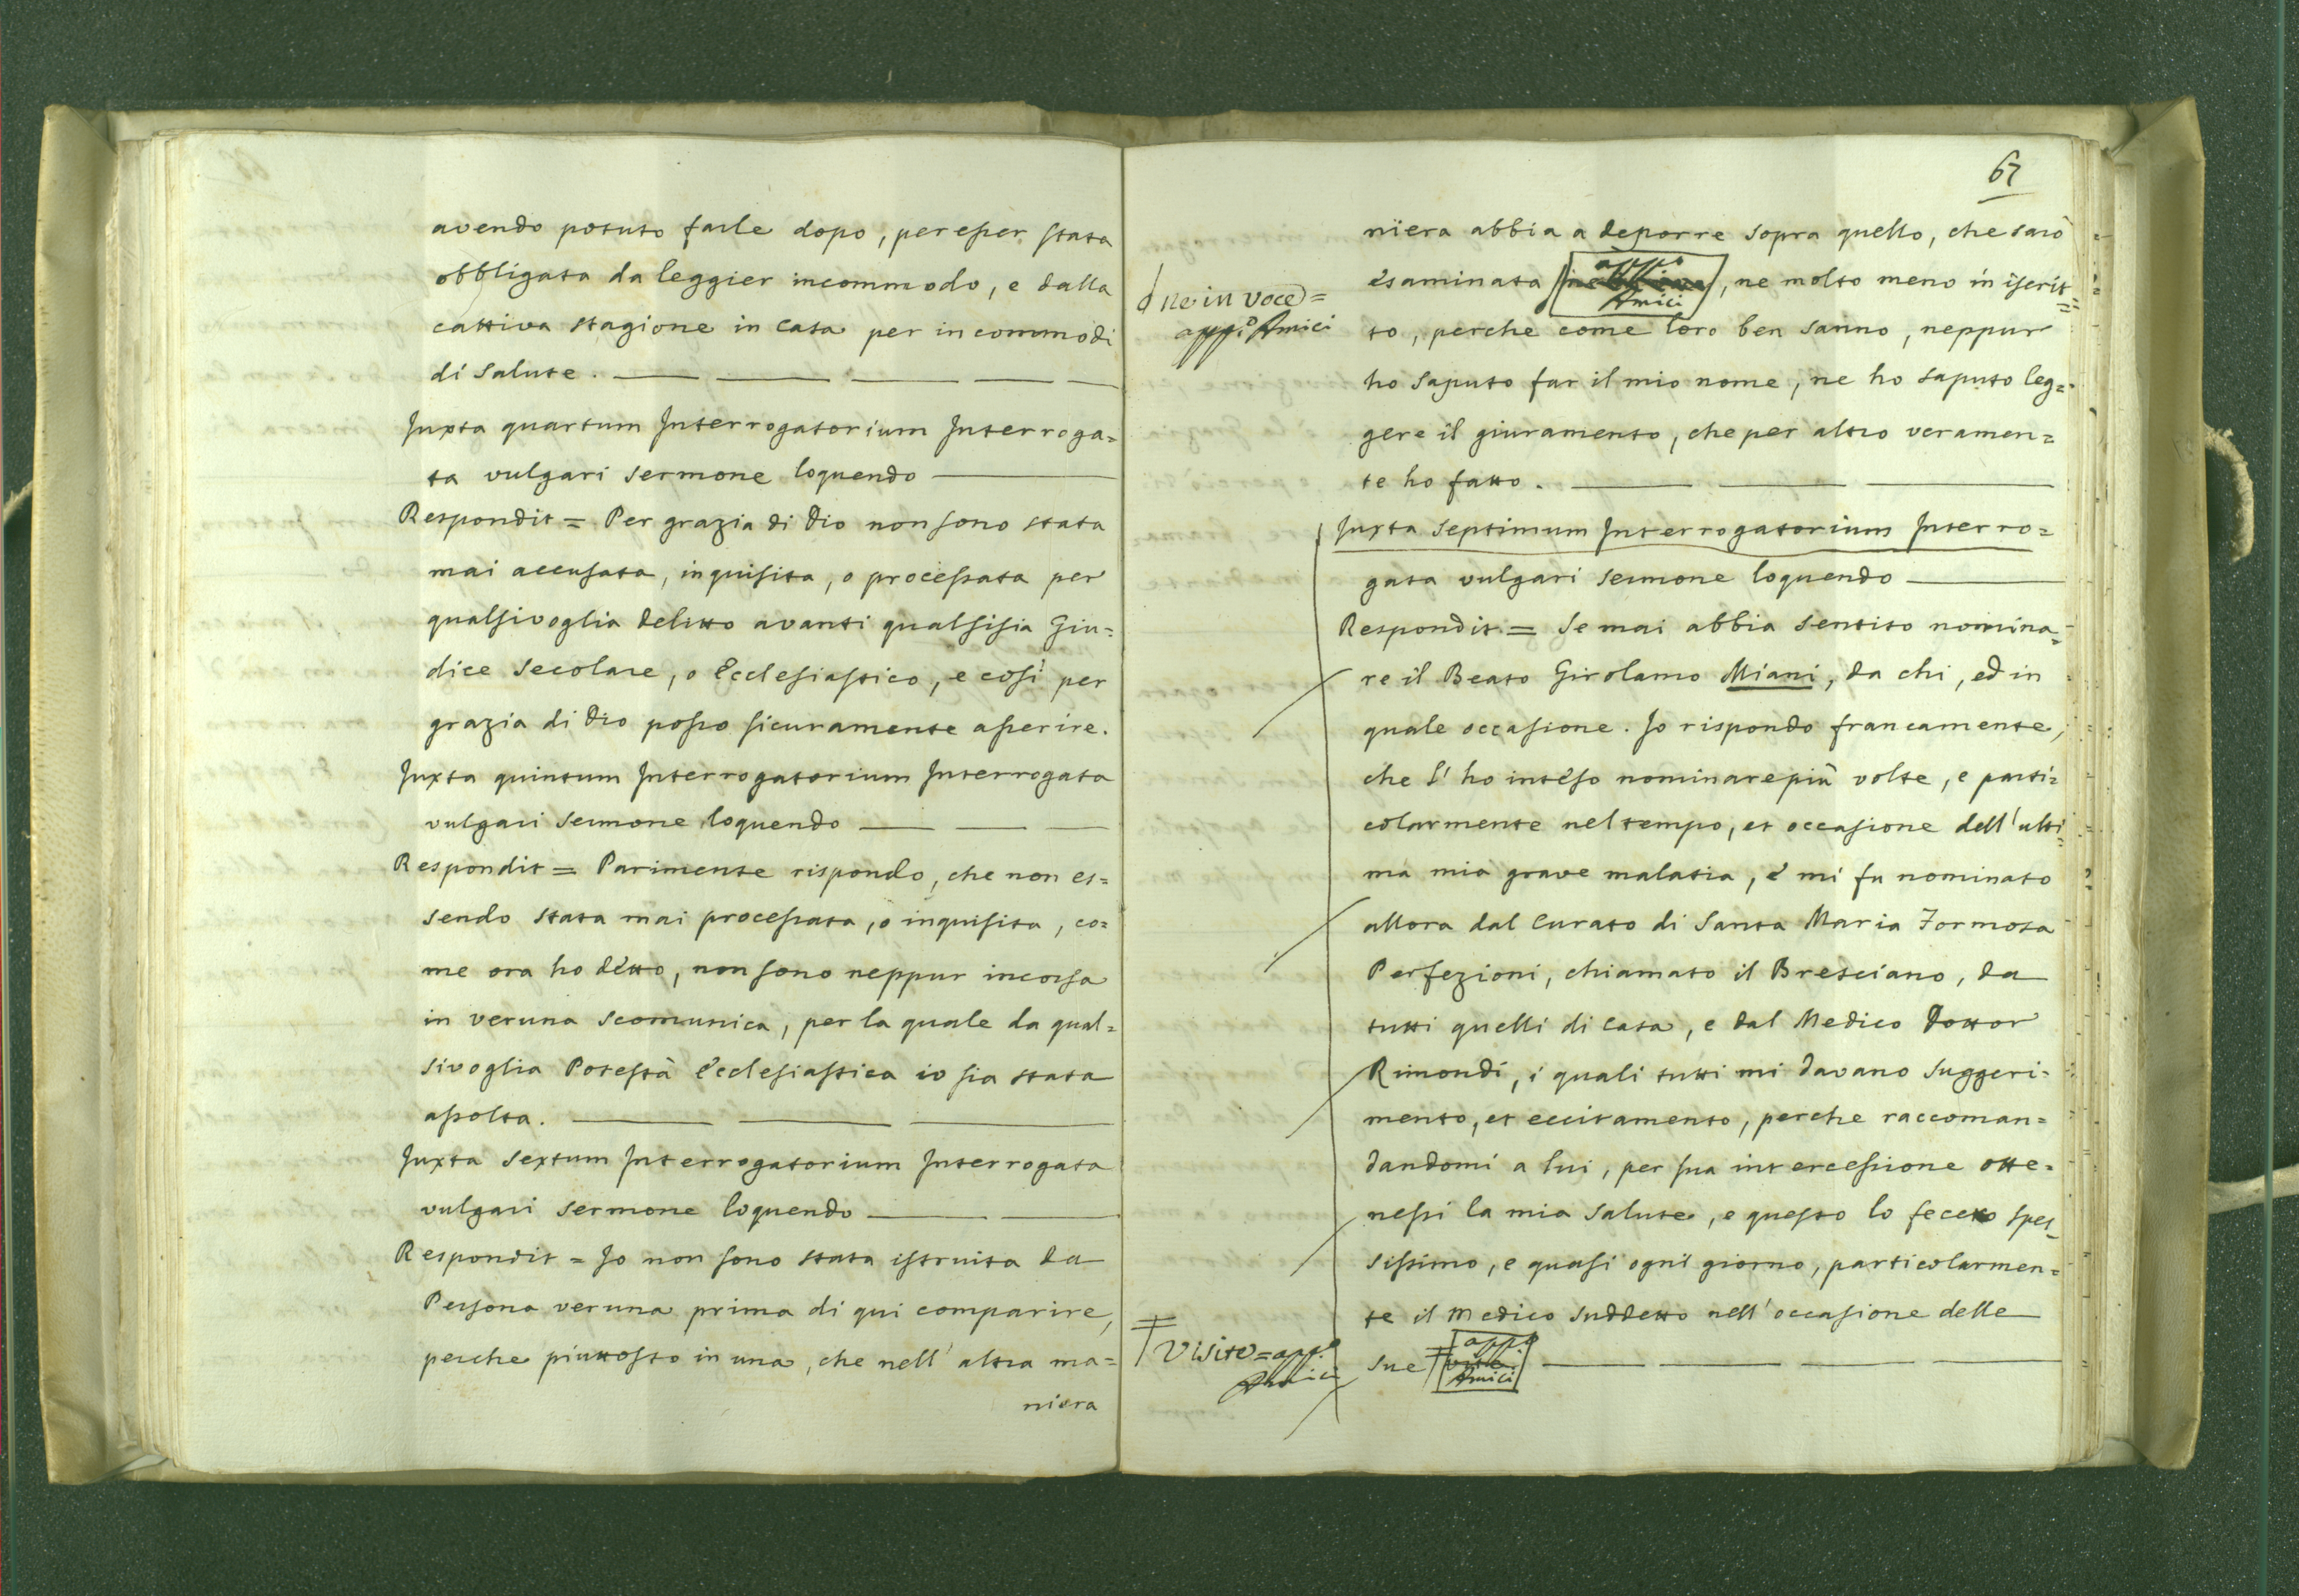 avendo potuto farle dopo, per esser stata
obbligata da leggier incommodo, e dalla
cattiva stagione in Casa per incommodi
di Salute.
Juxta quartum Interrogatorium Interroga=
ta vulgari sermone loquendo
Respondit = Per grazia di Dio non sono stata
mai accusata, inquisita, o processata per
qualsivoglia delitto avanti qualsisia Giu=
dice Secolare, o Ecclesiastico, e così per
grazia di Dio posso sicuramente asserire.
Juxta quintum Interrogatorium Interrogata
vulgari sermone loquendo
Respondit = Parimente rispondo, che non es=
sendo stata mai processata, o inquisita, co=
me ora ho detto, non sono neppur incorsa
in veruna scomunica, per la quale da qual=
sivoglia Potestà Ecclesiastica io sia stata
assolta.
Juxta sextum Interrogatorium Interrogata
vulgari sermone loquendo
Respondit = Jo non sono stata istruita da
Persona veruna prima di qui comparire,
perche piuttosto in una, che nell' altra ma=
niera
67
niera abbia a deporre sopra quello, che sarò
esaminata appo Amici, ne molto meno in iscrit=
ne in voce =
appo Amici
to, perche come loro ben sanno, neppur
ho saputo far il mio nome, ne ho saputo leg=
gere il giuramento, che per altro veramen=
te ho fatto.
Juxta septimum Interrogatorium Interro=
gata vulgari sermone loquendo
Respondit = Se mai abbia sentito nomina=
re il Beato Girolamo Miani, da chi, ed in
quale occasione. Jo rispondo francamente,
che l' ho inteso nominare più volte, e parti=
colarmente nel tempo, et occasione dell' ulti=
ma mia grave malatia, e mi fu nominato
allora dal Curato di Santa Maria Formosa
Perfezioni, chiamato il Bresciano, da
tutti quelli di Casa, e dal Medico Dottor
Rimondi, i quali tutti mi davano suggeri=
mento, et eccitamento, perche raccoman=
dandomi a lui, per sua intercessione otte=
nessi la mia Salute, e questo lo fecero spes=
sissimo, e quasi ogni giorno, particolarmen=
te il Medico suddetto nell' occasione delle
Visite = appo
Amici
sue appo Amici